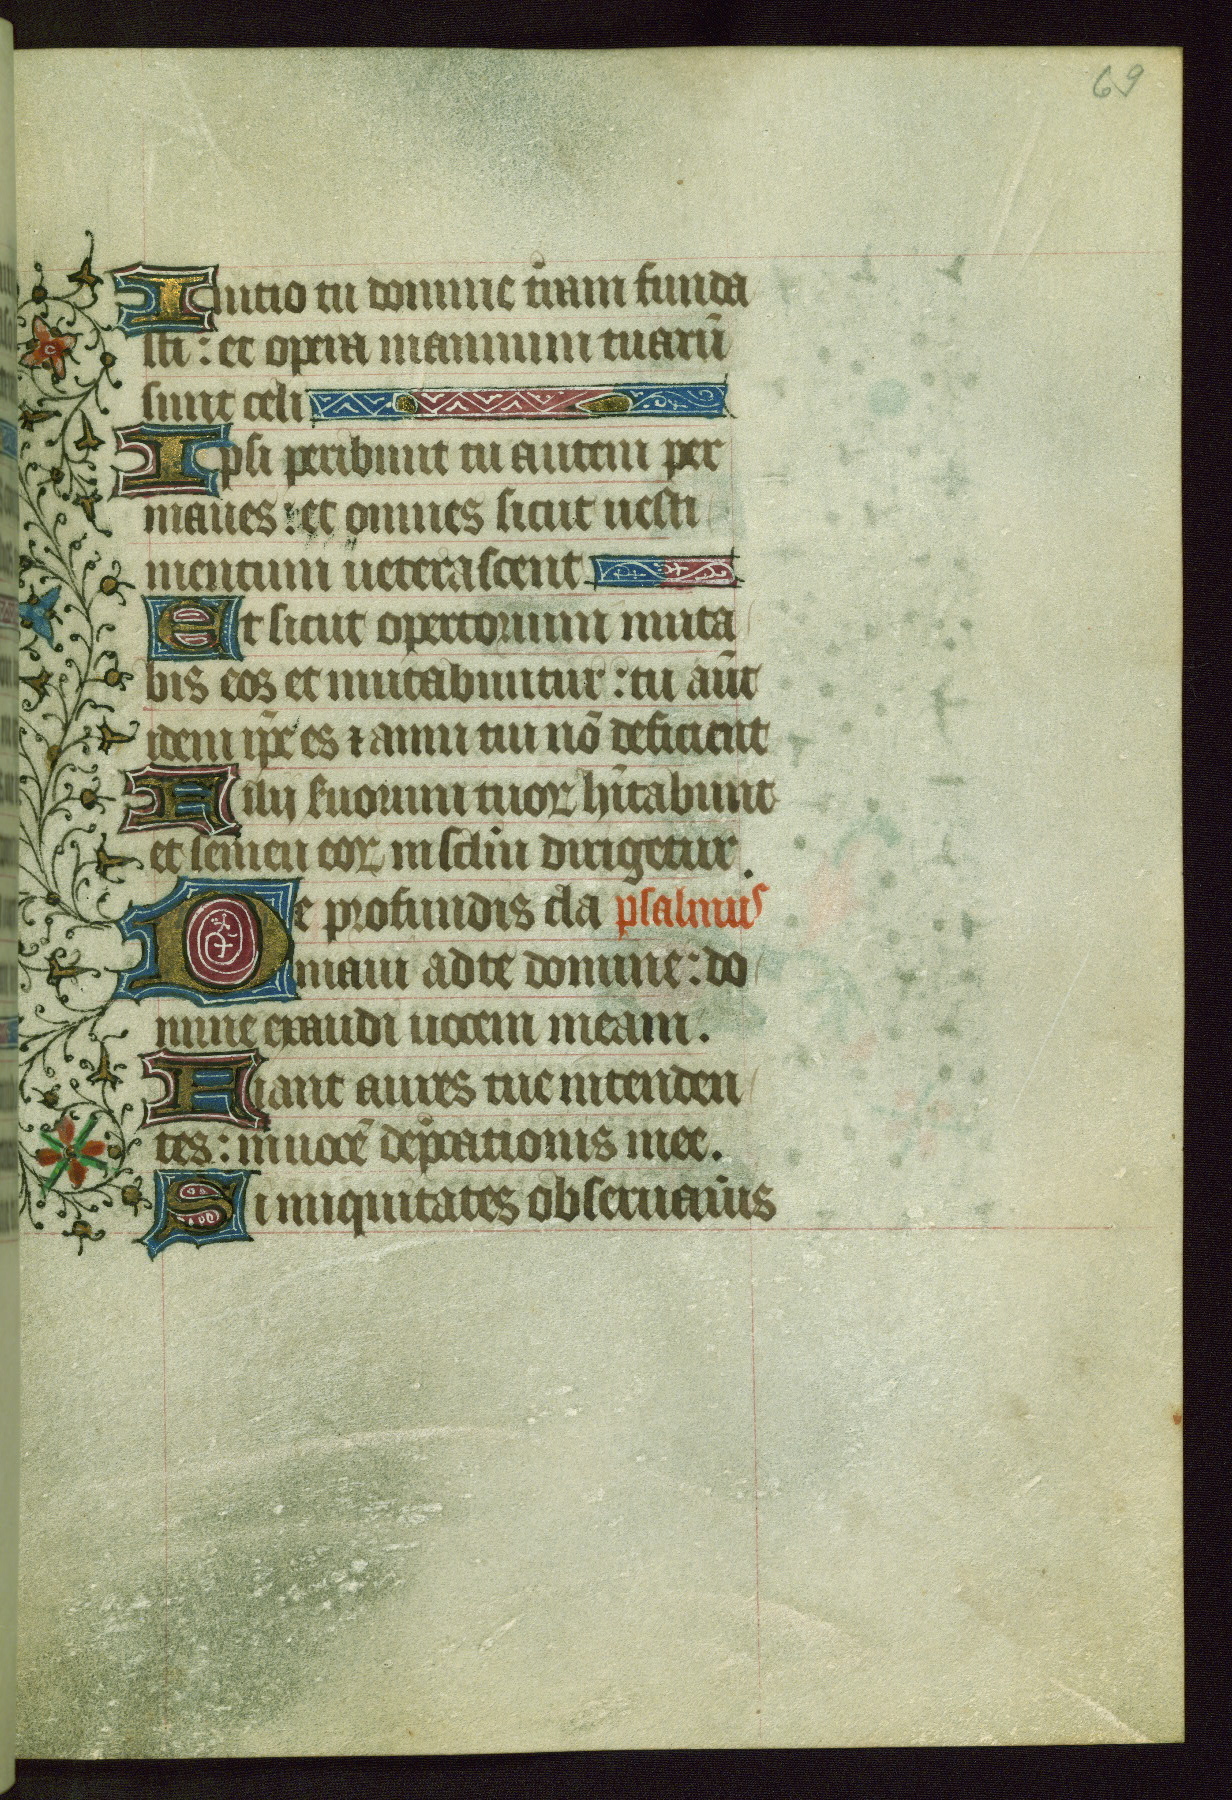 69
Initio tu domine t̄ram funda
sti : et opera manuum tuarū
sunt celi
Ipsi peribunt tu autem per
manes : et omnes sicut uesti
mentum ueterascent
Et sicut opertorium muta
bis eos et mutabuntur : tu aūt
idem ip̄e es ⁊ anni tui nō deficient
Filij seruorum tuoꝝ hītabunt
et semen eoꝝ in sclm̄ dirigetur .
De profundis cla psalmus
maui ad te domine : do
mine exaudi uocem meam .
Fiant aures tue intenden
tes : in uocē dep̄cationis mee .
Si iniquitates obseruaūis